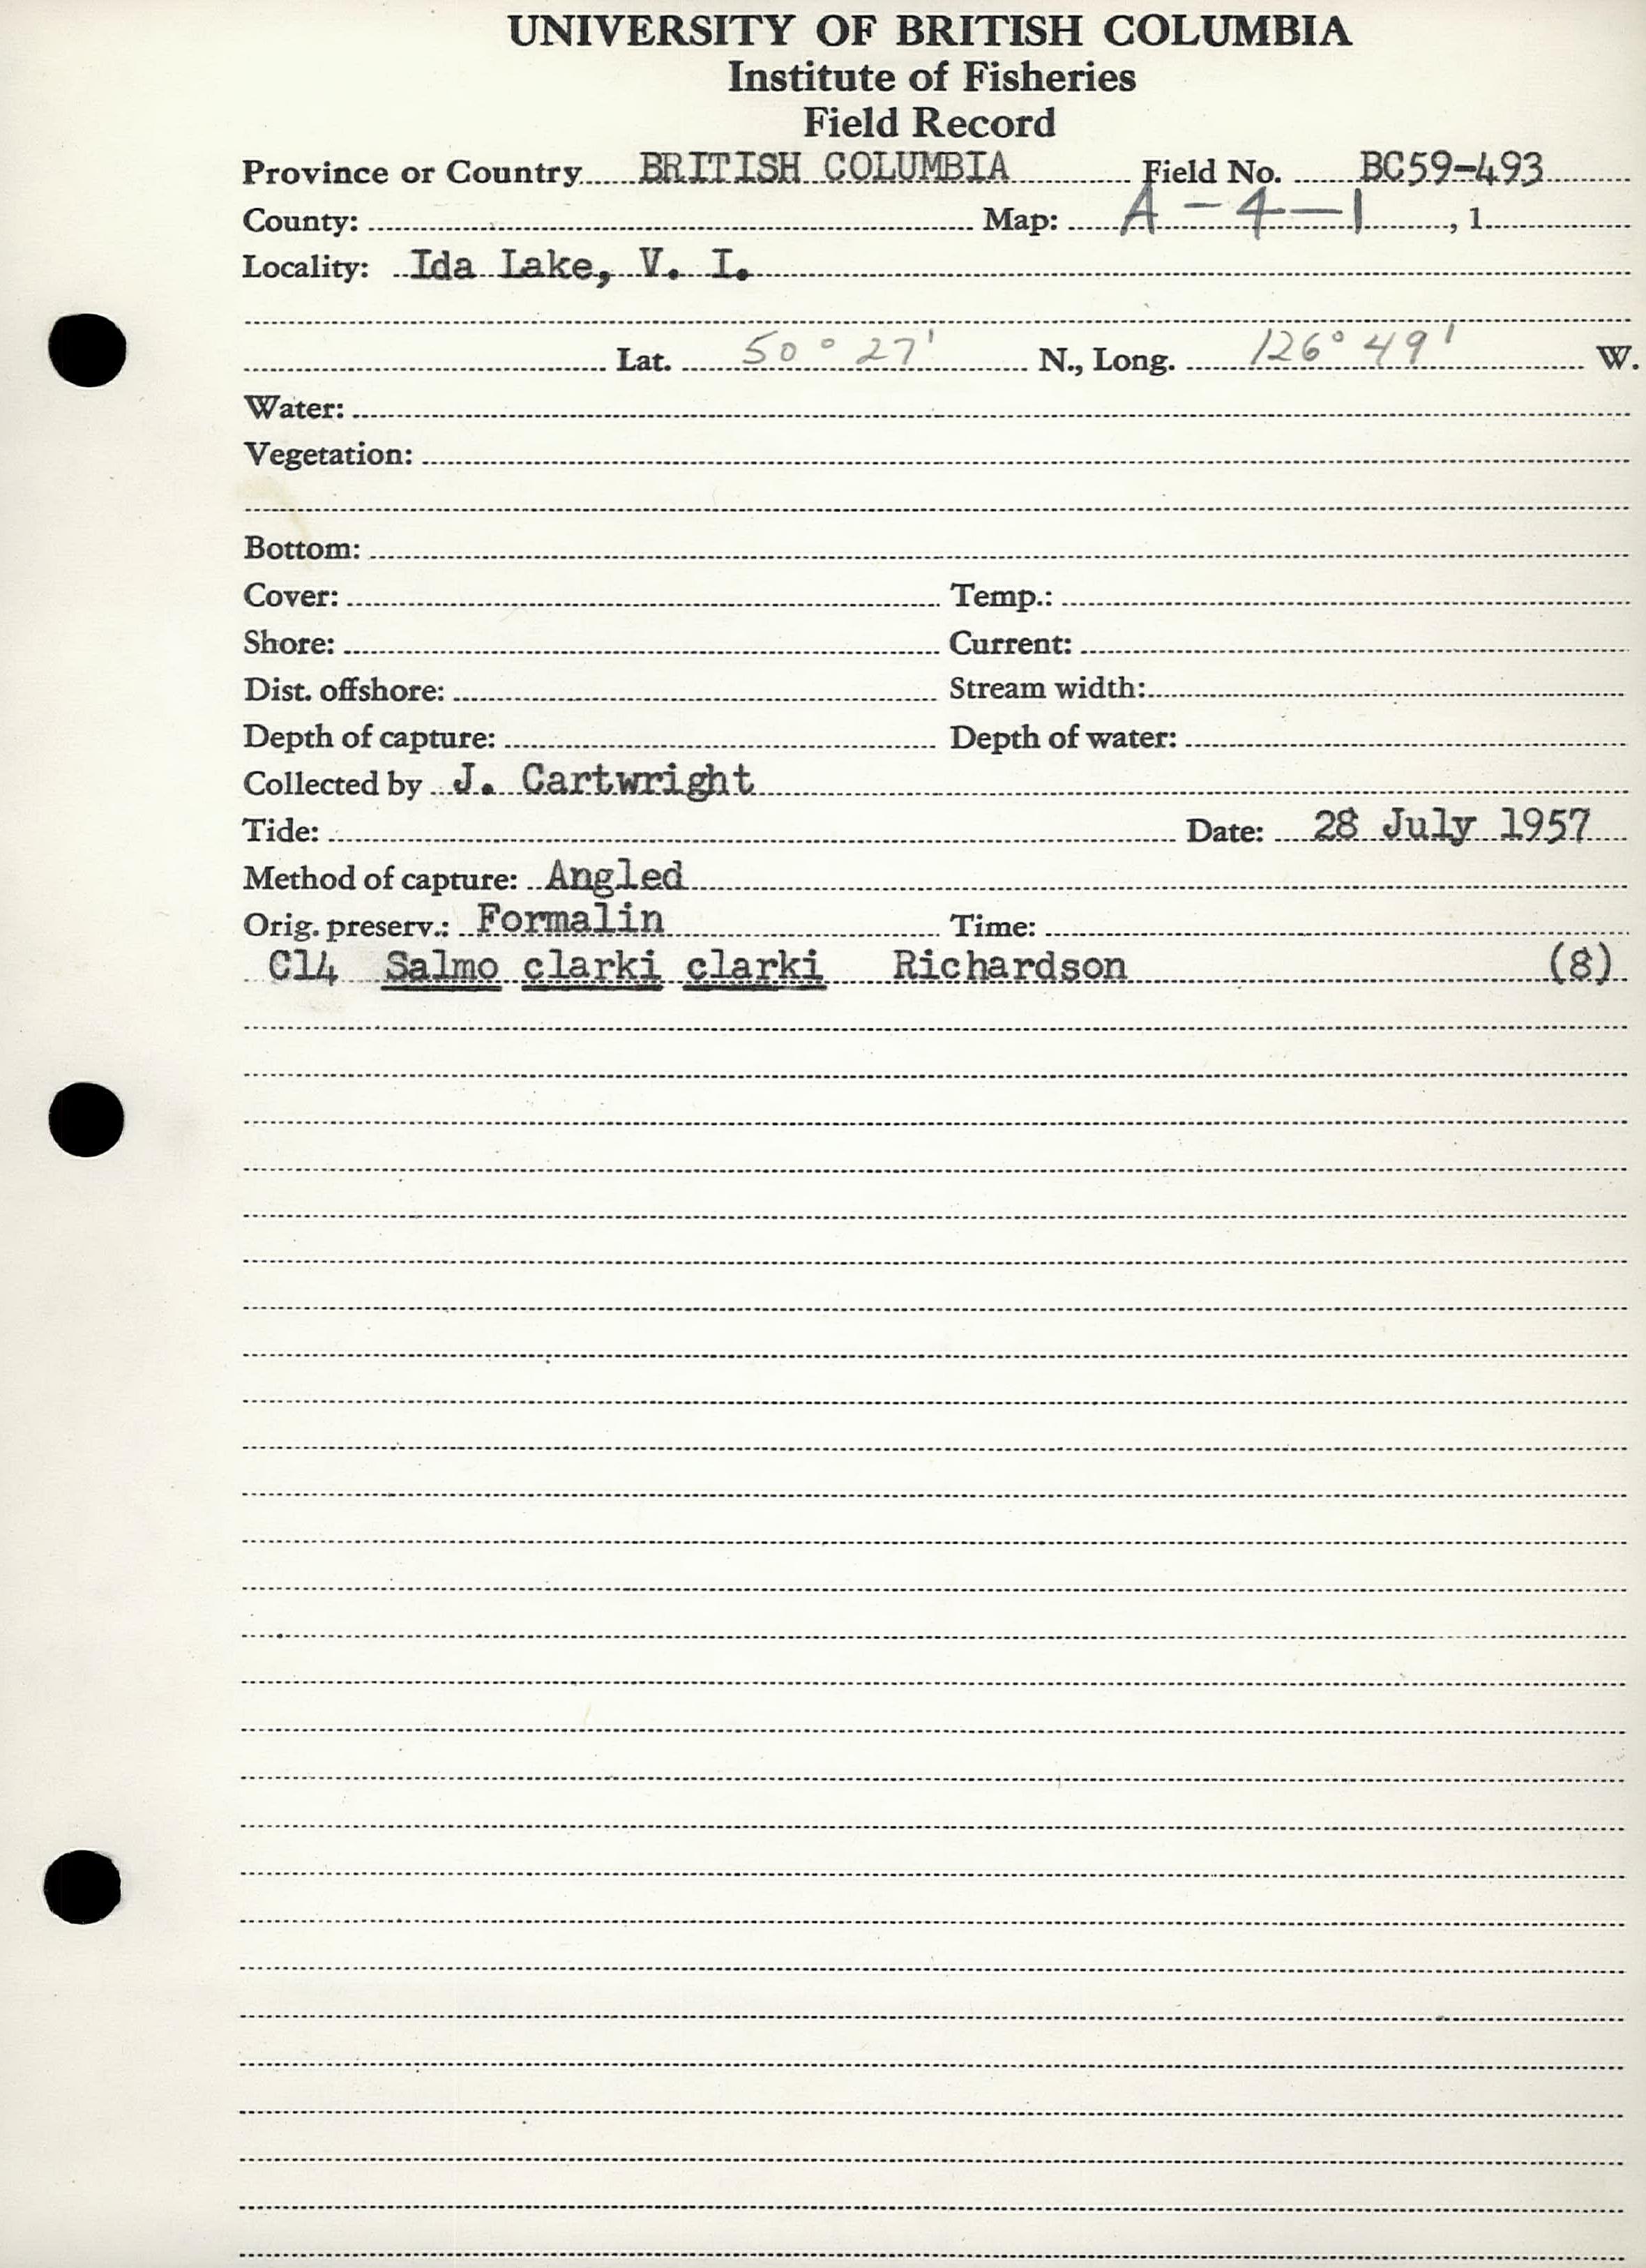 UNIVERSITY OF BRITISH COLUMBIA
Institute of Fisheries
Field Record
Province or Country BRITISH COLUMBIA Field No. BC59-493
County: Map: A-4-1, 1
Locality: Ida Lake, V. I.
Lat. 50° 27' N., Long. 126° 49' W.
Water:
Vegetation:
Bottom:
Cover: Temp.:
Shore: Current:
Dist. offshore: Stream width:
Depth of capture: Depth of water:
Collected by J. Cartwright
Tide: Date: 28 July 1957
Method of capture: Angled
Orig. preserv.: Formalin Time:
C14 Salmo clarki clarki Richardson (8)